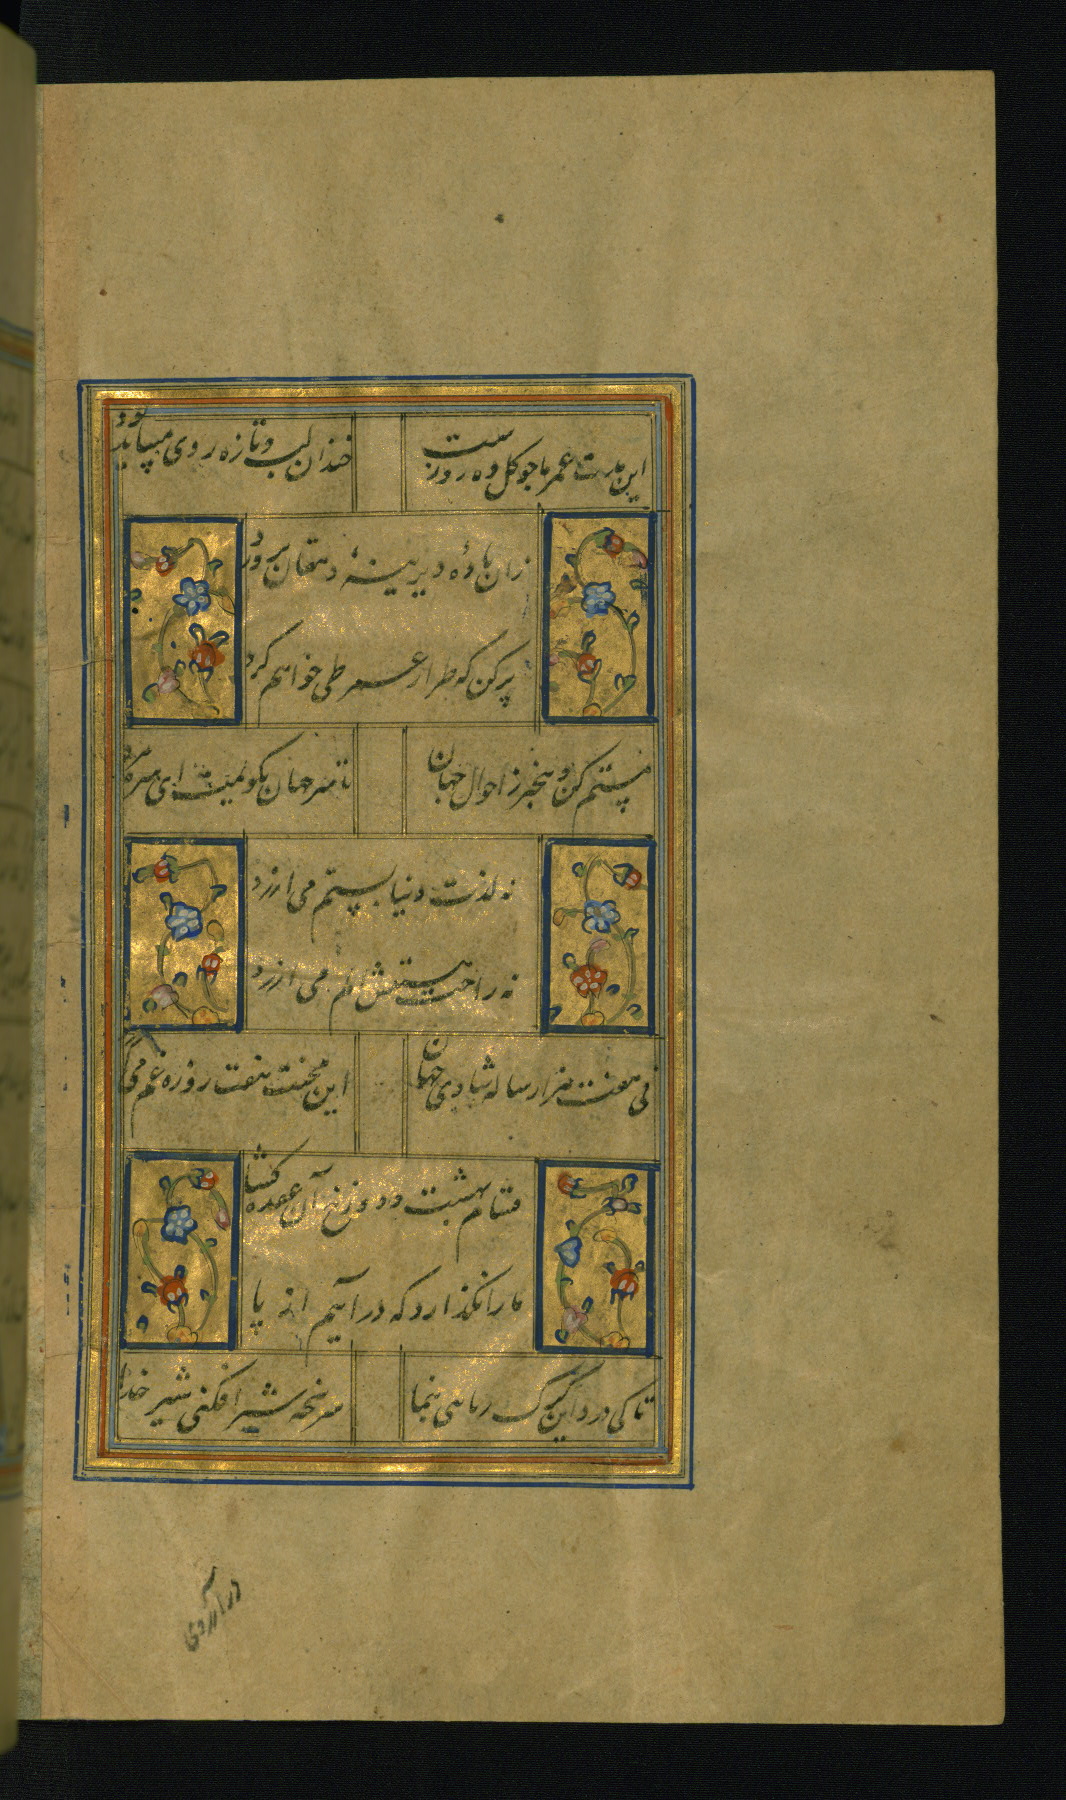 این مدت عمر ما چو گل ده روزست
خندان لب و تازه روی میباید بود
زان بادهٔ دیرینهٔ دهقان پرورد
پر کن که طراز عمر طی خواهم کرد
مستم کن و بیخبر ز احوال جهان
تا سر جهان بگویمت ای سره مرد
نه لذت دنیا بستم می ارزد
نه راحت هستیش الم می ارزد
نی هفت هزار ساله شادی جهان
این محنت هفت روزه غم می
قسام بهشت و دوزخ آن عقده گشا
ما را نگذارد که درآییم از پا
تا کی بود این گرگ ربایی بنما
سرپنجه شیر افکنی شیر خدا
در آرزوی